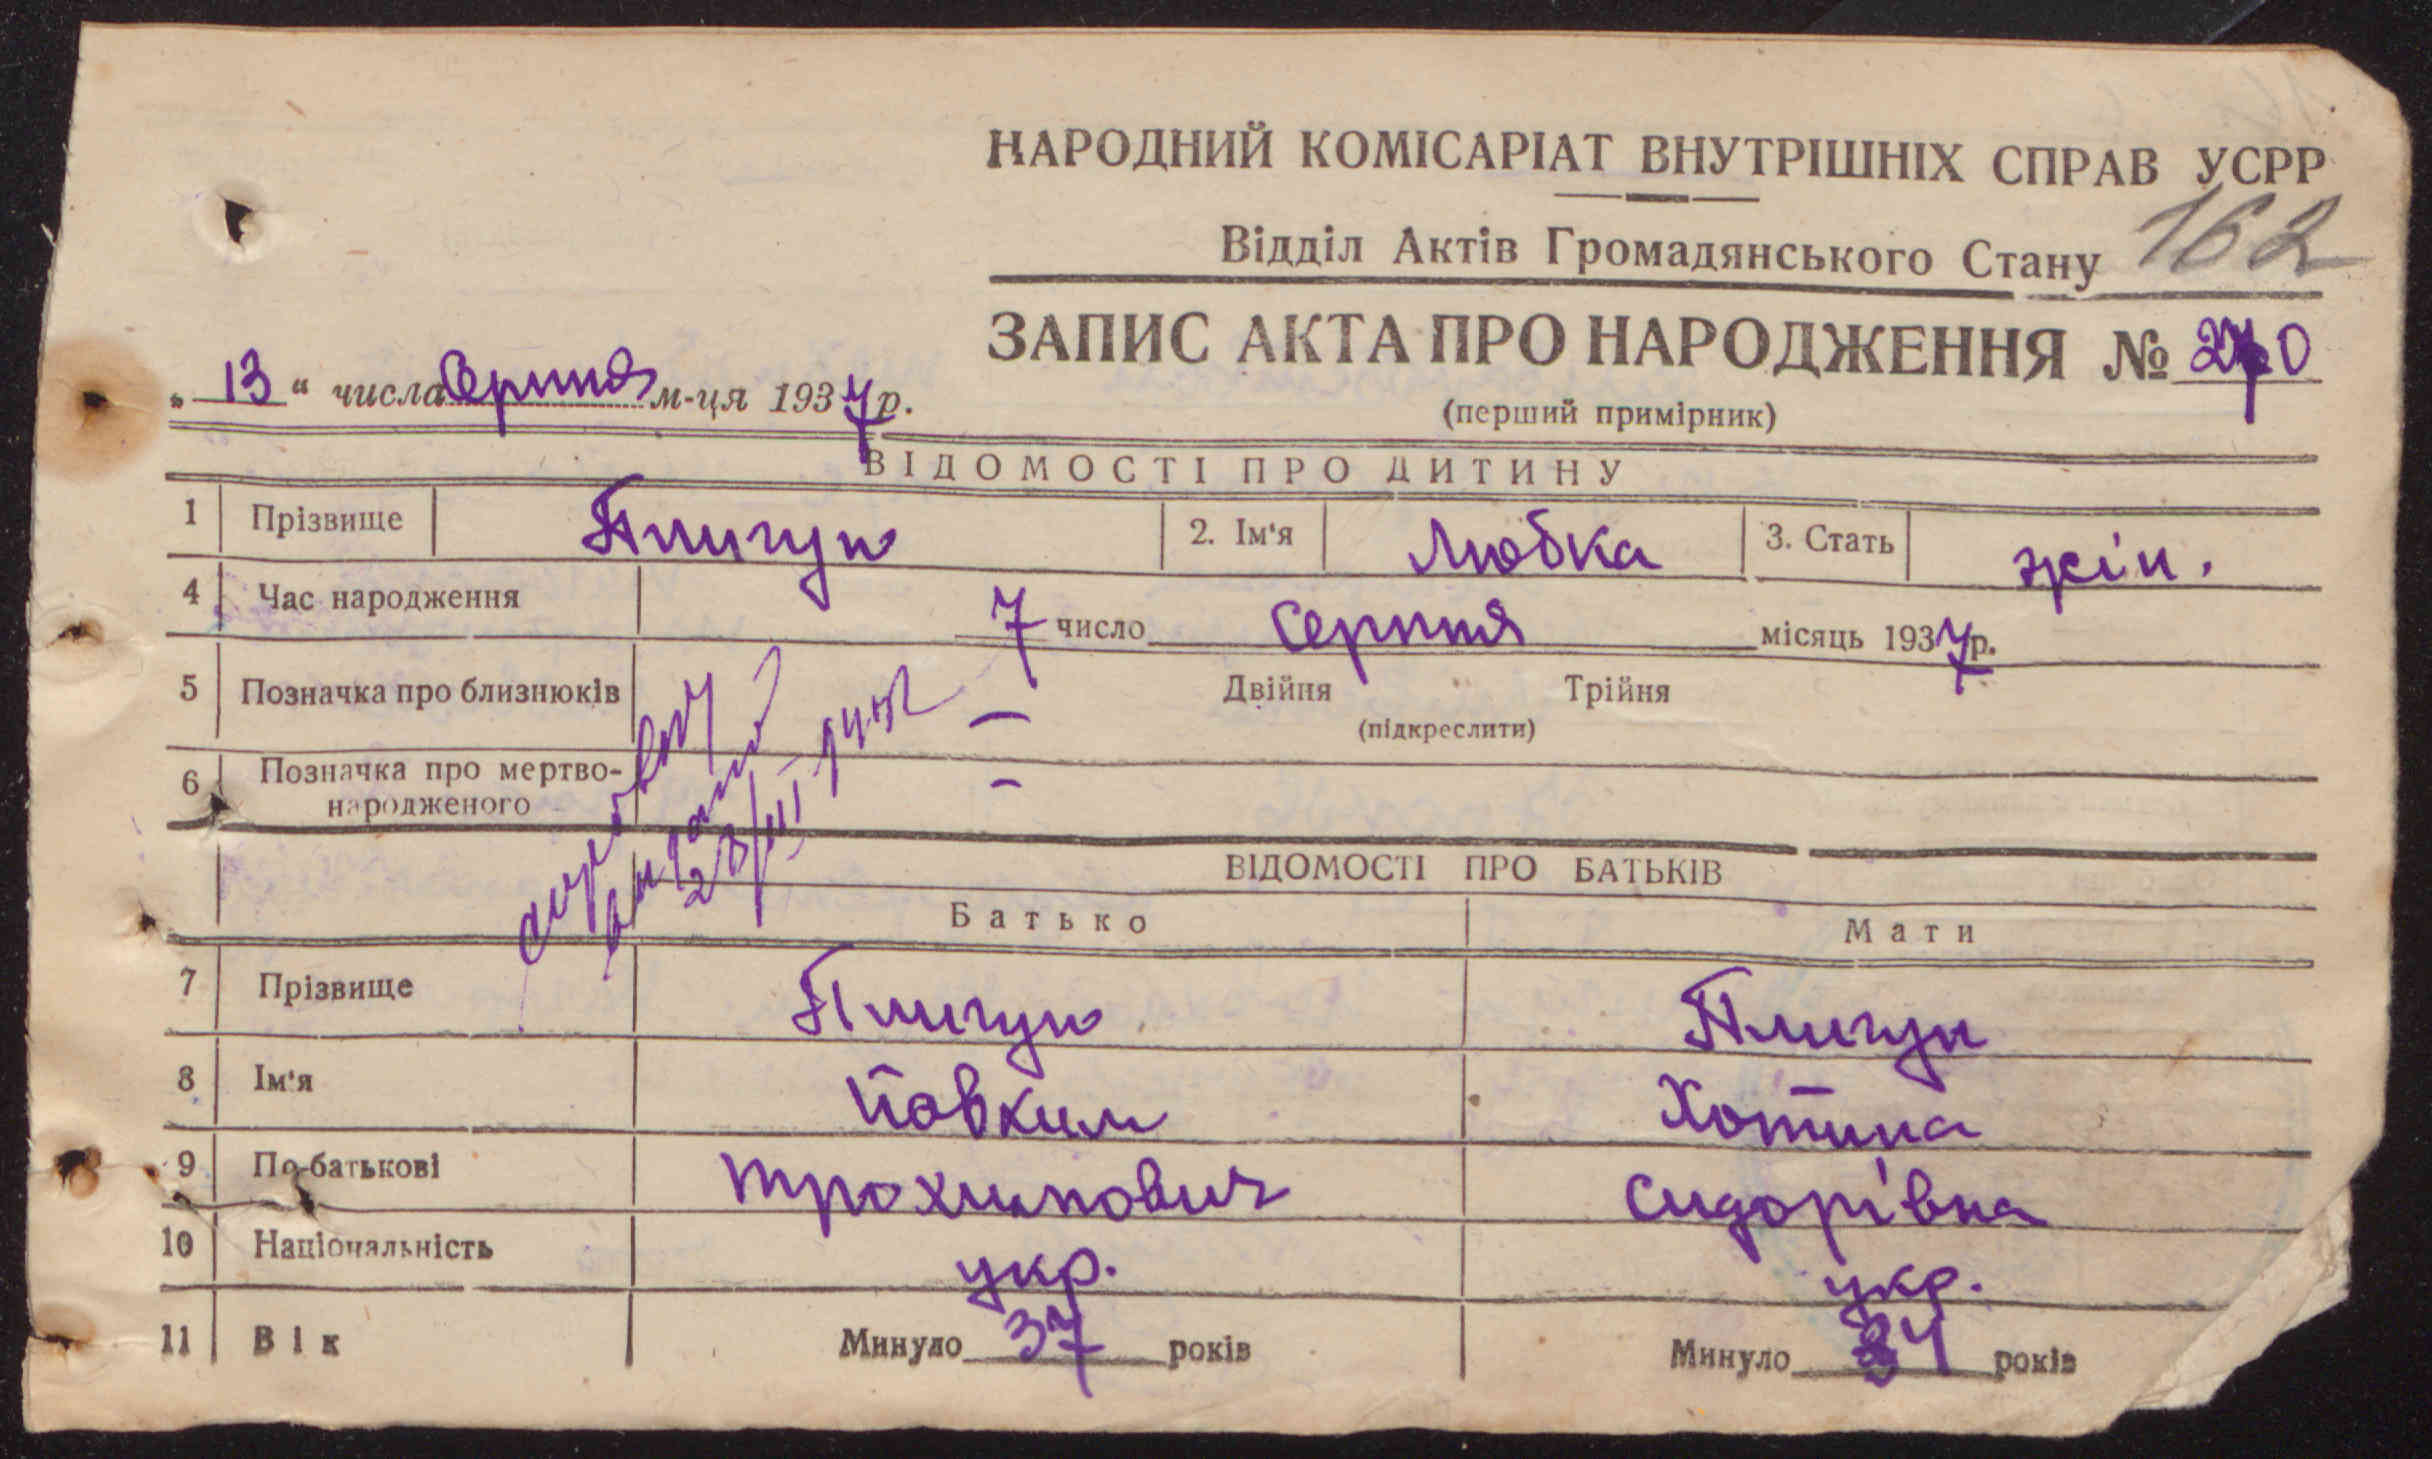 НАРОДНИЙ КОМІСАРІАТ ВНУТРІШНІХ СПРАВ УСРР
162
Відділ Актів Громадянського Стану
ЗАПИС АКТА ПРО НАРОДЖЕННЯ № 270
„ 13 “ числа Серпня м-ця 1937 р.
(перший примірник)
ВІДОМОСТІ ПРО ДИТИНУ
1 Прізвище Плигун 2. Ім'я Любка 3. Стать жін.
4 Час народження 7 число Серпня місяць 1937 р.
5 Позначка про близнюків — Двійня Трійня
(підкреслити)
6 Позначка про мертво-
народженого —
ВІДОМОСТІ ПРО БАТЬКІВ
Батько Мати
7 Прізвище Плигун Плигун
8 Ім'я Йовким Хотина
9 По-батькові Трохимович Сидорівна
10 Національність укр. укр.
11 Вік Минуло 37 років Минуло 34 років